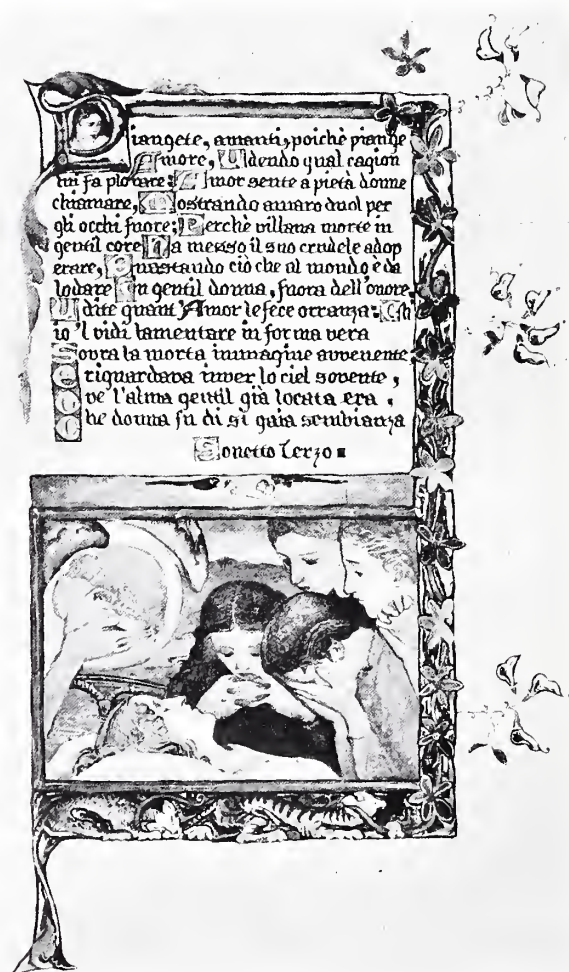 Piangete, amanti, poichè piange
Amore, Udendo qual cagion
mi fa plorare: Amor sente a pietà donne
chiamare, Mostrando amaro duol per
gli occhi fuore; Perchè villana morte in
gentil core Ha messo il suo crudele adop
erare, Guastando ciò che al mondo è da
lodare In gentil donna, fuora dell'onore.
Udite quant'Amor le fece orranza: Ch
io 'l vidi lamentare in forma vera
Sovra la morta immagine avvenente
E riguardava inver lo ciel sovente,
Ove l'alma gentil già locata era,
Che donna fu di sì gaia sembianza
Sonetto Terzo